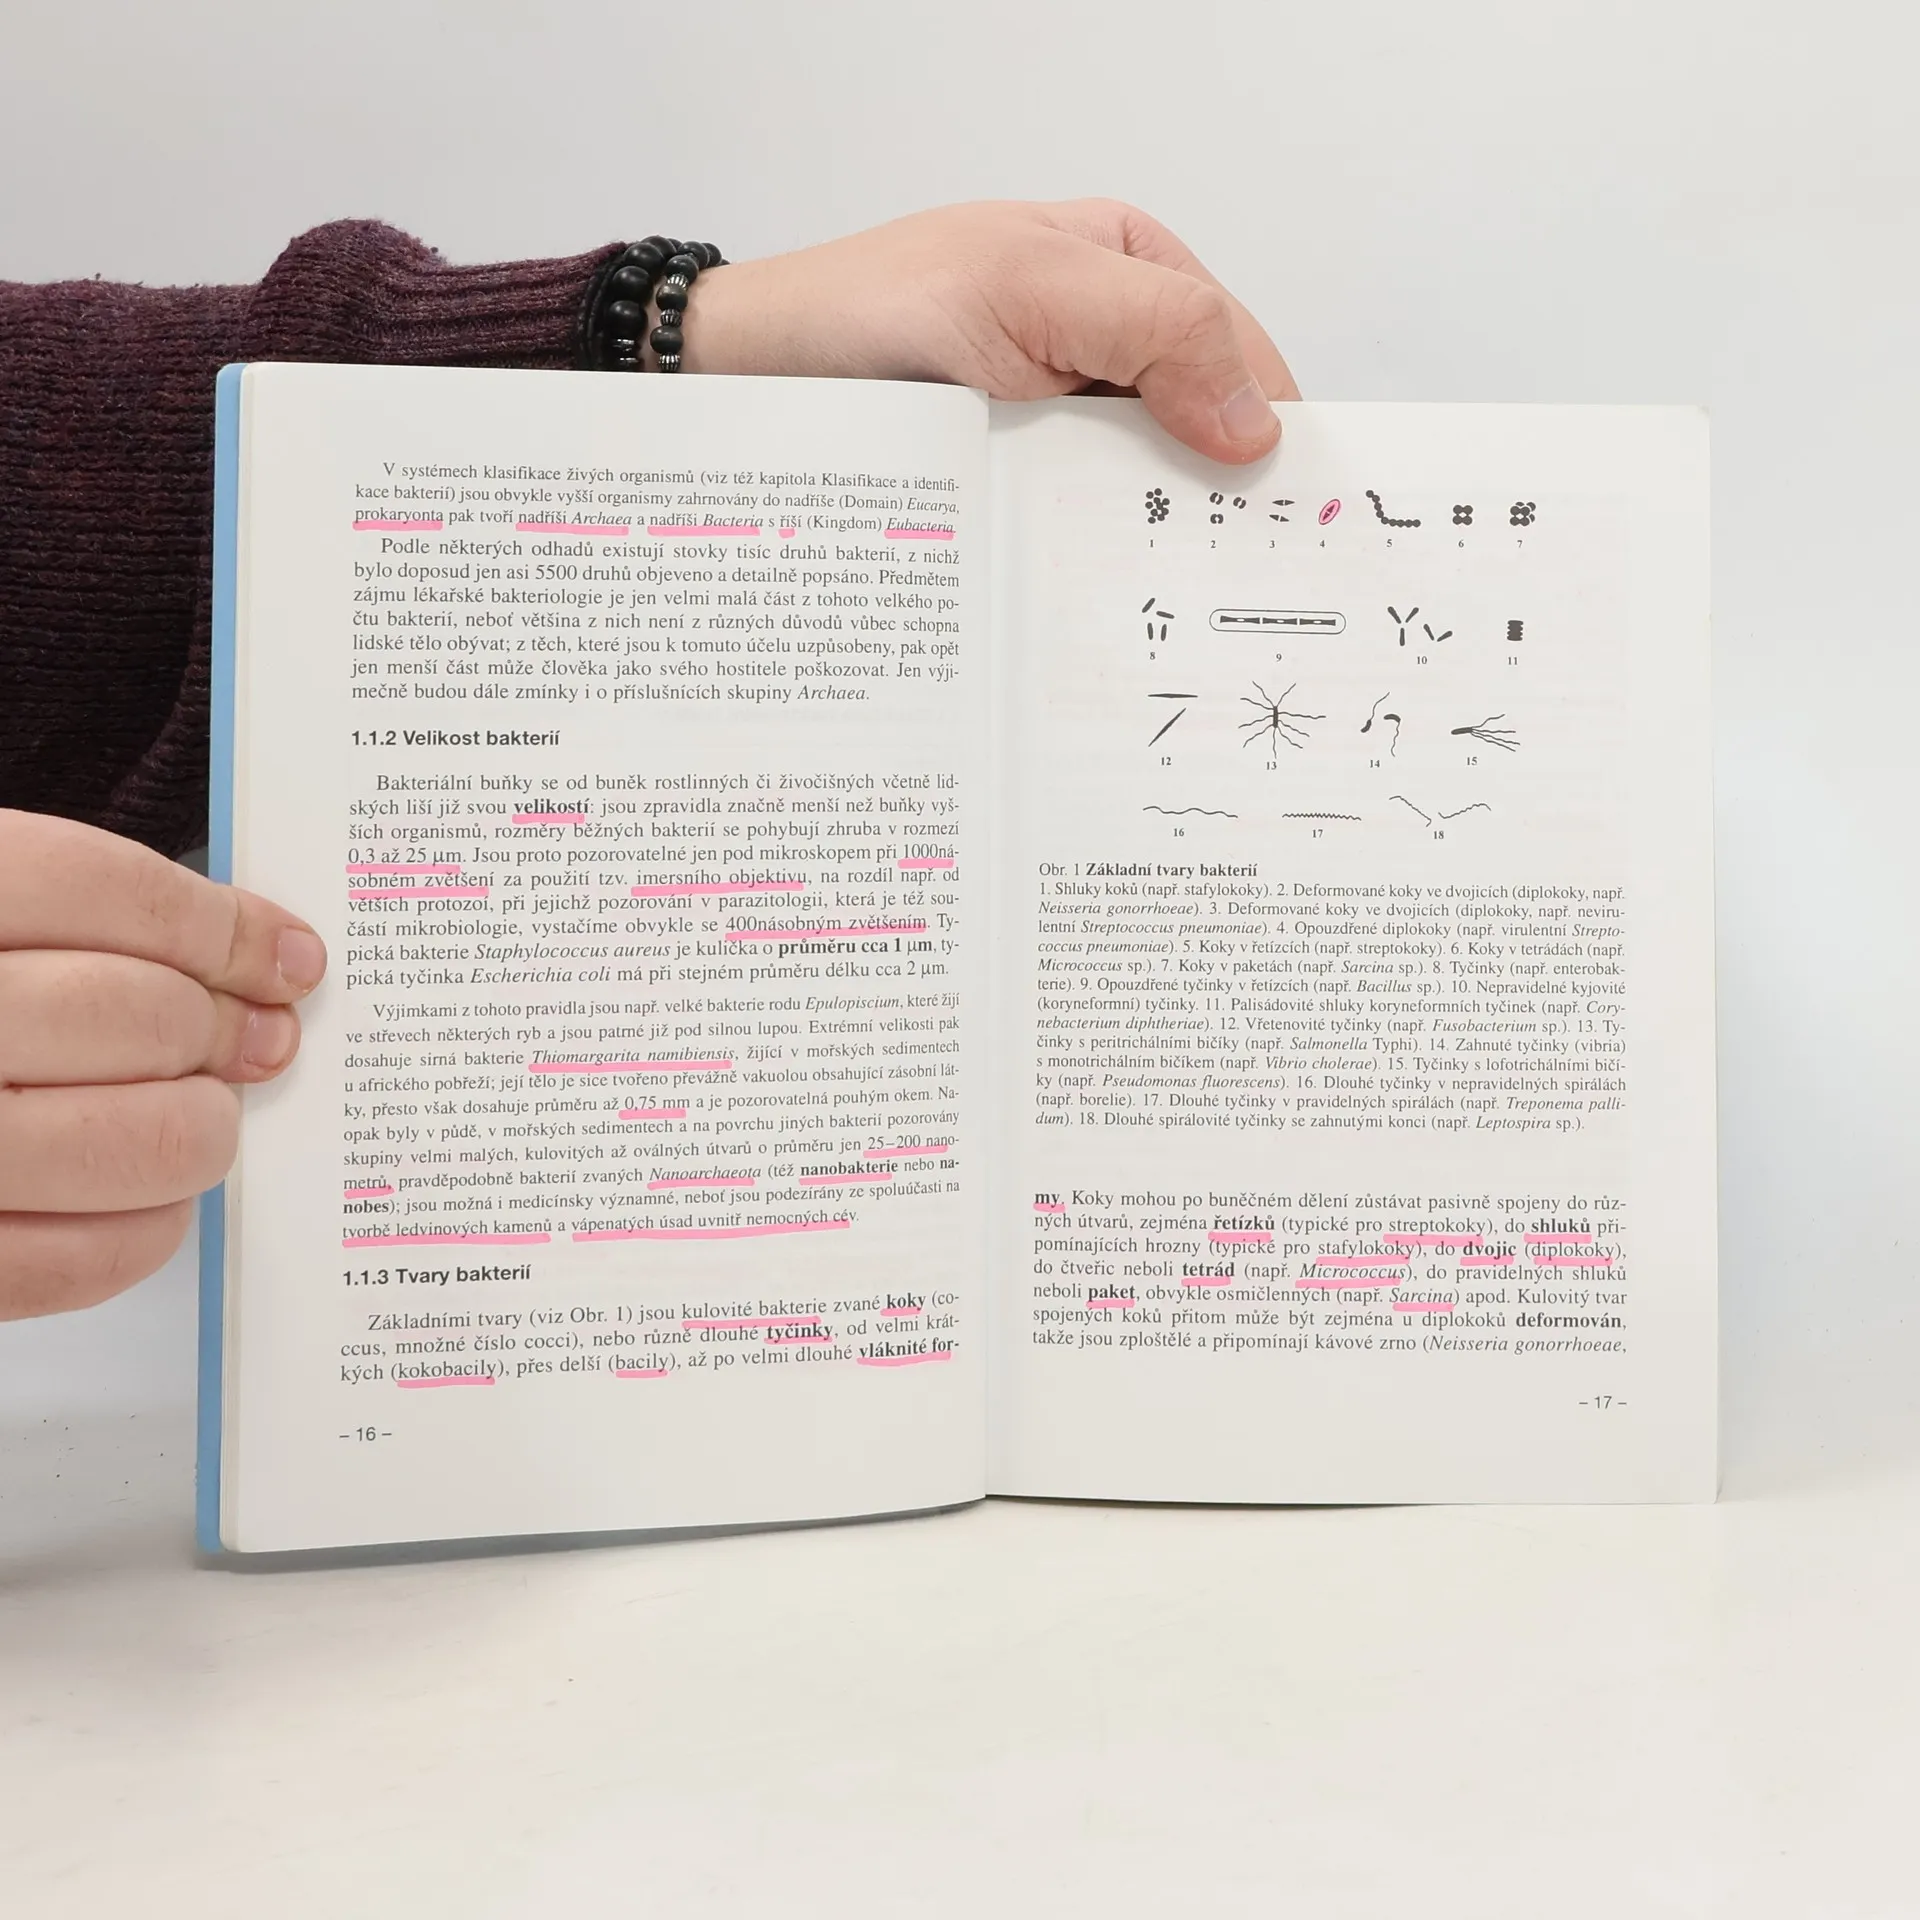 V systémech klasifikace živých organismů (viz též kapitola Klasifikace a identifi-
kace bakterií) jsou obvykle vyšší organismy zahrnovány do nadříše (Domain) Eucarya,
prokaryonta pak tvoří nadříši Archaea a nadříši Bacteria s říší (Kingdom) Eubacteria.
Podle některých odhadů existují stovky tisíc druhů bakterií, z nichž
bylo doposud jen asi 5500 druhů objeveno a detailně popsáno. Předmětem
zájmu lékařské bakteriologie je jen velmi malá část z tohoto velkého po-
čtu bakterií, neboť většina z nich není z různých důvodů vůbec schopna
lidské tělo obývat; z těch, které jsou k tomuto účelu uzpůsobeny, pak opět
jen menší část může člověka jako svého hostitele poškozovat. Jen výji-
mečně budou dále zmínky i o příslušnících skupiny Archaea.
1.1.2 Velikost bakterií
Bakteriální buňky se od buněk rostlinných či živočišných včetně lid-
ských liší již svou velikostí: jsou zpravidla značně menší než buňky vyš-
ších organismů, rozměry běžných bakterií se pohybují zhruba v rozmezí
0,3 až 25 μm. Jsou proto pozorovatelné jen pod mikroskopem při 1000ná-
sobném zvětšení za použití tzv. imersního objektivu, na rozdíl např. od
větších protozoí, při jejichž pozorování v parazitologii, která je též sou-
částí mikrobiologie, vystačíme obvykle se 400násobným zvětšením. Ty-
pická bakterie Staphylococcus aureus je kulička o průměru cca 1 μm, ty-
pická tyčinka Escherichia coli má při stejném průměru délku cca 2 μm.
Výjimkami z tohoto pravidla jsou např. velké bakterie rodu Epulopiscium, které žijí
ve střevech některých ryb a jsou patrné již pod silnou lupou. Extrémní velikosti pak
dosahuje sirná bakterie Thiomargarita namibiensis, žijící v mořských sedimentech
u afrického pobřeží; její tělo je sice tvořeno převážně vakuolou obsahující zásobní lát-
ky, přesto však dosahuje průměru až 0,75 mm a je pozorovatelná pouhým okem. Na-
opak byly v půdě, v mořských sedimentech a na povrchu jiných bakterií pozorovány
skupiny velmi malých, kulovitých až oválných útvarů o průměru jen 25–200 nano-
metrů, pravděpodobně bakterií zvaných Nanoarchaeota (též nanobakterie nebo na-
nobes); jsou možná i medicínsky významné, neboť jsou podezírány ze spoluúčasti na
tvorbě ledvinových kamenů a vápenatých úsad uvnitř nemocných cév.
1.1.3 Tvary bakterií
Základními tvary (viz Obr. 1) jsou kulovité bakterie zvané koky (co-
ccus, množné číslo cocci), nebo různě dlouhé tyčinky, od velmi krát-
kých (kokobacily), přes delší (bacily), až po velmi dlouhé vláknité for-
– 16 –
1 2 3 4 5 6 7
8 9 10 11
12 13 14 15
16 17 18
Obr. 1 Základní tvary bakterií
1. Shluky koků (např. stafylokoky). 2. Deformované koky ve dvojicích (diplokoky, např.
Neisseria gonorrhoeae). 3. Deformované koky ve dvojicích (diplokoky, např. neviru-
lentní Streptococcus pneumoniae). 4. Opouzdřené diplokoky (např. virulentní Strepto-
coccus pneumoniae). 5. Koky v řetízcích (např. streptokoky). 6. Koky v tetrádách (např.
Micrococcus sp.). 7. Koky v paketách (např. Sarcina sp.). 8. Tyčinky (např. enterobak-
terie). 9. Opouzdřené tyčinky v řetízcích (např. Bacillus sp.). 10. Nepravidelné kyjovité
(koryneformní) tyčinky. 11. Palisádovité shluky koryneformních tyčinek (např. Cory-
nebacterium diphtheriae). 12. Vřetenovité tyčinky (např. Fusobacterium sp.). 13. Ty-
činky s peritrichálními bičíky (např. Salmonella Typhi). 14. Zahnuté tyčinky (vibria)
s monotrichálním bičíkem (např. Vibrio cholerae). 15. Tyčinky s lofotrichálními bičí-
ky (např. Pseudomonas fluorescens). 16. Dlouhé tyčinky v nepravidelných spirálách
(např. borelie). 17. Dlouhé tyčinky v pravidelných spirálách (např. Treponema palli-
dum). 18. Dlouhé spirálovité tyčinky se zahnutými konci (např. Leptospira sp.).
my. Koky mohou po buněčném dělení zůstávat pasivně spojeny do růz-
ných útvarů, zejména řetízků (typické pro streptokoky), do shluků při-
pomínajících hrozny (typické pro stafylokoky), do dvojic (diplokoky),
do čtveřic neboli tetrád (např. Micrococcus), do pravidelných shluků
neboli paket, obvykle osmičlenných (např. Sarcina) apod. Kulovitý tvar
spojených koků přitom může být zejména u diplokoků deformován,
takže jsou zploštělé a připomínají kávové zrno (Neisseria gonorrhoeae,
– 17 –